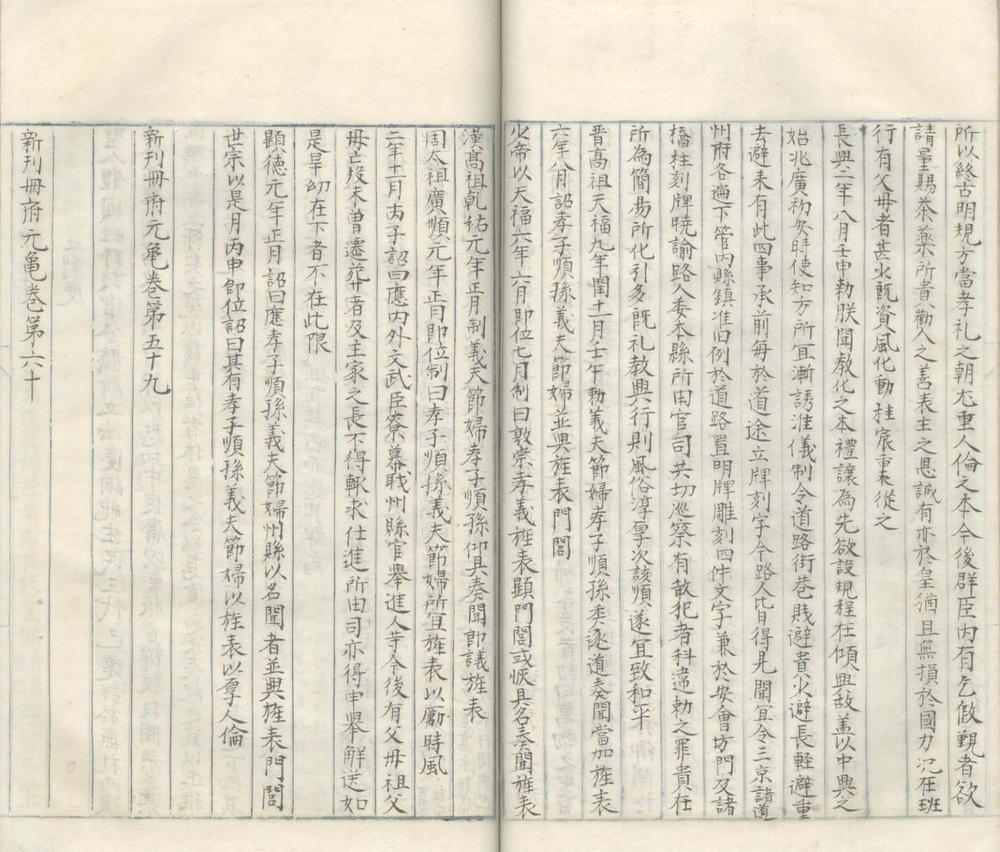 所以終古明規方當孝礼之朝尤重人倫之本今後群臣内有乞假覲者欲
請量賜茶藥所貴勸人之善表主之恩誠有亦於皇猶且無損於國力况在班
行有父毋者甚少既資風化動挂宸衷從之
長興二年八月壬申勑朕聞教化之本禮讓為先欲設規程在傾興敌盖以中興之
始兆廣初安時使知方所宜漸誘准儀制令道路街巷賎避貴火避長軽避重
去避来有此四事承前每於道途立牌刻字令路人皆得見聞宜令三京諸道
州府各遍下管内縣鎮准旧例於道路置明牌雕刻四件文字兼於安會坊門及諸
橋柱刻牌暁諭路人委本縣所由官司共切巡察有敢犯者科違勅之罪貴在
所為簡易所化引多既礼教興行則風俗淳厚次該順遂宜致和平
晋髙祖天福九年閏十二月壬午勅義夫節婦孝子順孫委逐道奏聞當加旌表
六年八月詔孝子順孫義夫節婦並與旌表門閭
少帝以天福六年六月即位七月制曰敦崇孝義旌表顕門閭或恢具名奏聞旌表
漢髙祖乾祐元年正月制義夫節婦孝子順孫仰具奏聞即議旌表
周太祖廣順元年正月即位制曰孝子順孫義夫節婦所宜旌表以勵時風
二年十一月丙子詔曰應内外文武臣寮幕職州縣官舉進人等今後有父毋祖父
毋亡殁未曾遷葬者及主家之長不得輙求仕進所由司亦得申舉解送如
是卑幼在下者不在此限
顕德元年正月詔曰應孝子順孫義夫節婦州縣以名聞者並與旌表門閭
世宗以是月丙申即位詔曰其有孝子順孫義夫節婦以旌表以厚人倫
新刊冊府元亀巻第五十九
新刊冊府元亀巻第六十